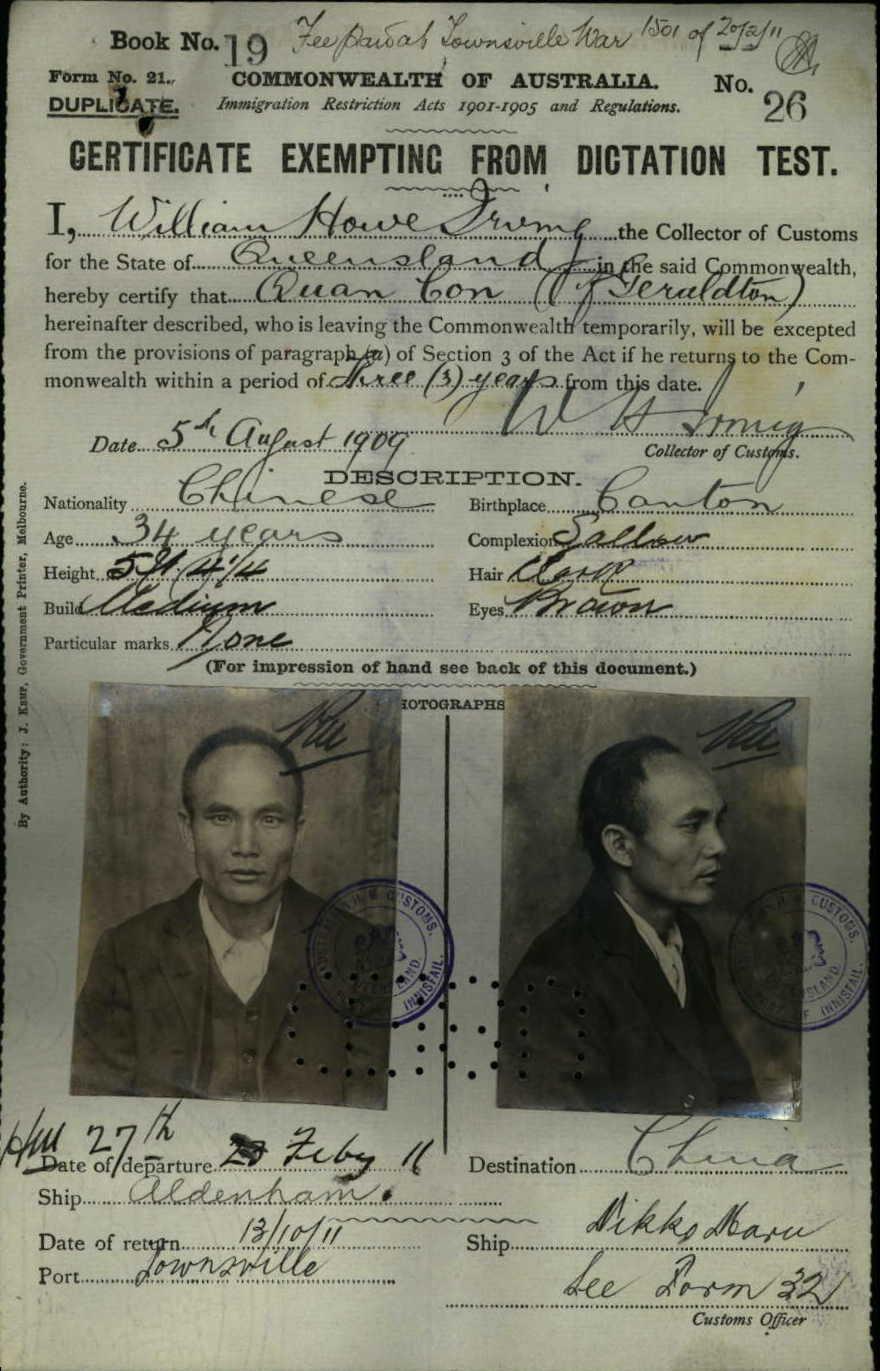 Book No. 19 Fee paid at Townsville War 1501 of 20/2/11
Form No. 21. COMMONWEALTH OF AUSTRALIA. No. 26
DUPLICATE. Immigration Restriction Acts 1901-1905 and Regulations.
CERTIFICATE EXEMPTING FROM DICTATION TEST.
I, William Howe Irving the Collector of Customs
for the State of Queensland in the said Commonwealth,
hereby certify that Quan Con (of Geraldton)
hereinafter described, who is leaving the Commonwealth temporarily, will be excepted
from the provisions of paragraph (a) of Section 3 of the Act if he returns to the Com-
monwealth within a period of three (3) years from this date.
W H Irving
Date 5th August 1909 Collector of Customs.
DESCRIPTION.
Nationality Chinese Birthplace Canton
Age 34 years Complexion Sallow
Height 5ft 4 1/4 Hair Dark
Build Medium Eyes Brown
Particular marks None
(For impression of hand see back of this document.)
PHOTOGRAPHS
By Authority: J. Kemp, Government Printer, Melbourne.
CUSTOMS. INNISFAIL.
CUSTOMS. OF INNISFAIL.
27th
Date of departure Feby 11 Destination China
Ship Aldenham
Date of return 13/10/11 Ship Nikko Maru
Port Townsville See Form 32
Customs Officer